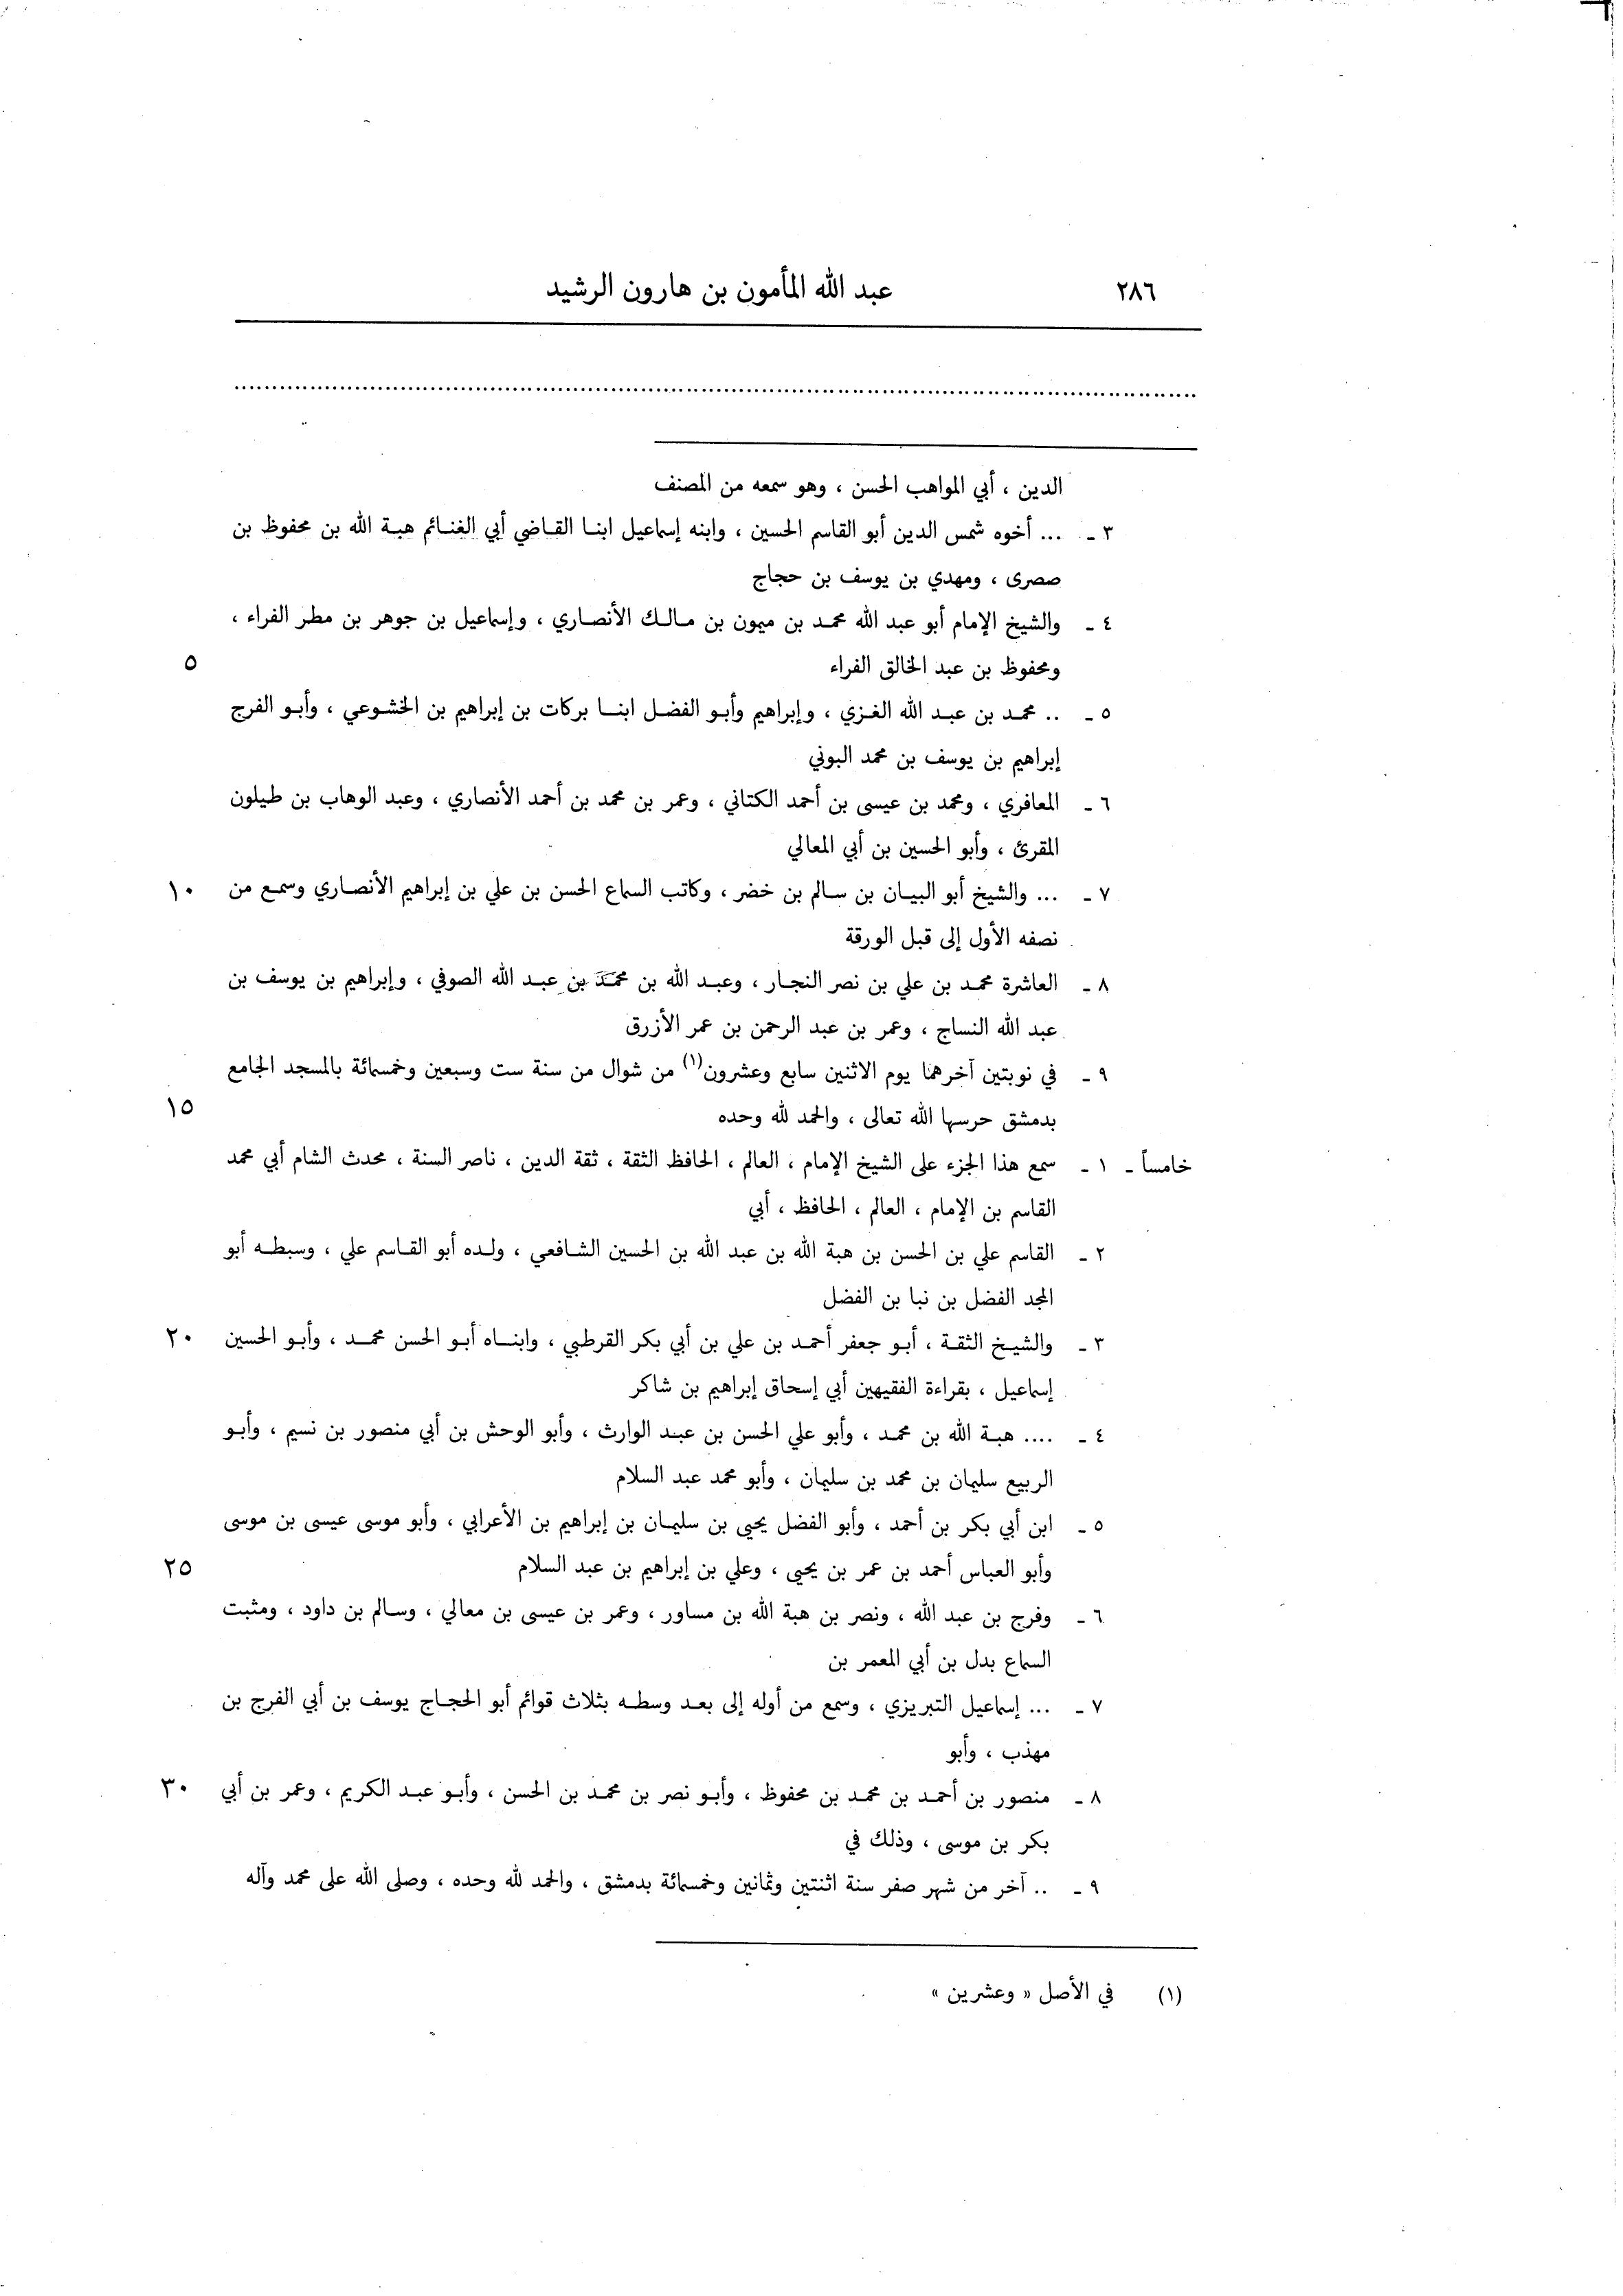 ٢٨٦ عبد الله المأمون بن هارون الرشيد
................................................................
الدين ، أبي المواهب الحسن ، وهو سمعه من المصنف
٣ ـ ... أخوه شمس الدين أبو القاسم الحسين ، وابنه إسماعيل ابنا القاضي أبي الغنائم هبة الله بن محفوظ بن
صصرى ، ومهدي بن يوسف بن حجاج
٤ ـ والشيخ الإمام أبو عبد الله محمد بن ميمون بن مالك الأنصاري ، وإسماعيل بن جوهر بن مطر الفراء ،
ومحفوظ بن عبد الخالق الفراء ٥
٥ ـ .. محمد بن عبد الله الغزي ، وإبراهيم وأبو الفضل ابنا بركات بن إبراهيم بن الخشوعي ، وأبو الفرج
إبراهيم بن يوسف بن محمد البوني
٦ ـ المعافري ، ومحمد بن عيسى بن أحمد الكتاني ، وعمر بن محمد بن أحمد الأنصاري ، وعبد الوهاب بن طيلون
المقرئ ، وأبو الحسين بن أبي المعالي
٧ ـ ... والشيخ أبو البيان بن سالم بن خضر ، وكاتب السماع الحسن بن علي بن إبراهيم الأنصاري وسمع من ١٠
نصفه الأول إلى قبل الورقة
٨ ـ العاشرة محمد بن علي بن نصر النجار ، وعبد الله بن محمد بن عبد الله الصوفي ، وإبراهيم بن يوسف بن
عبد الله النساج ، وعمر بن عبد الرحمن بن عمر الأزرق
٩ ـ في نوبتين آخرهما يوم الاثنين سابع وعشرون(١) من شوال من سنة ست وسبعين وخمسمائة بالمسجد الجامع
بدمشق حرسها الله تعالى ، والحمد لله وحده ١٥
خامساً ـ ١ ـ سمع هذا الجزء على الشيخ الإمام ، العالم ، الحافظ الثقة ، ثقة الدين ، ناصر السنة ، محدث الشام أبي محمد
القاسم بن الإمام ، العالم ، الحافظ ، أبي
٢ ـ القاسم علي بن الحسن بن هبة الله بن عبد الله بن الحسين الشافعي ، ولده أبو القاسم علي ، وسبطه أبو
المجد الفضل بن نبا بن الفضل
٣ ـ والشيخ الثقة ، أبو جعفر أحمد بن علي بن أبي بكر القرطبي ، وابناه أبو الحسن محمد ، وأبو الحسين ٢٠
إسماعيل ، بقراءة الفقيهين أبي إسحاق إبراهيم بن شاكر
٤ ـ .... هبة الله بن محمد ، وأبو علي الحسن بن عبد الوارث ، وأبو الوحش بن أبي منصور بن نسيم ، وأبو
الربيع سليمان بن محمد بن سليمان ، وأبو محمد عبد السلام
٥ ـ ابن أبي بكر بن أحمد ، وأبو الفضل يحيى بن سليمان بن إبراهيم بن الأعرابي ، وأبو موسى عيسى بن موسى
وأبو العباس أحمد بن عمر بن يحيى ، وعلي بن إبراهيم بن عبد السلام ٢٥
٦ ـ وفرج بن عبد الله ، ونصر بن هبة الله بن مساور ، وعمر بن عيسى بن معالي ، وسالم بن داود ، ومثبت
السماع بدل بن أبي المعمر بن
٧ ـ ... إسماعيل التبريزي ، وسمع من أوله إلى بعد وسطه بثلاث قوائم أبو الحجاج يوسف بن أبي الفرج بن
مهذب ، وأبو
٨ ـ منصور بن أحمد بن محمد بن محفوظ ، وأبو نصر بن محمد بن الحسن ، وأبو عبد الكريم ، وعمر بن أبي ٣٠
بكر بن موسى ، وذلك في
٩ ـ .. آخر من شهر صفر سنة اثنتين وثمانين وخمسمائة بدمشق ، والحمد لله وحده ، وصلى الله على محمد وآله
(١) في الأصل « وعشرين »